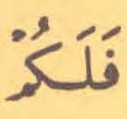 فَلَكُمْ